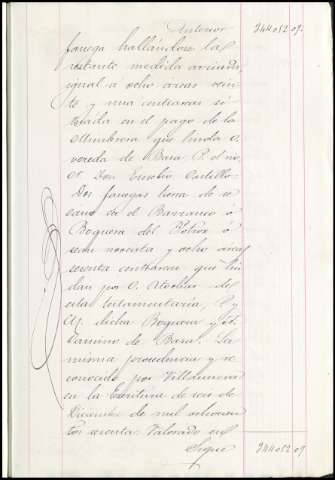 Anterior 344052 09.
fanega hallándose la
restante medida arenada,
igual á ocho áreas vein
te y una centiareas si
tuada en el pago de la
que linda O.
vereda de Bara, P. el no.
or. Don Eusebio Castillo.
Dos fanegas tierra de se
cano en el Barranco ó
Boquera del Polvox ó
sean noventa y ocho áreas
sesenta centiareas que lin
dan por O. de
esta testamentaria, P. y
M. dicha Boquera y N.
Camino de Bara. La
misma procedencia y se
conocido por Villanueva
en la Escritura de seis de
Diciembre de mil ochocien
tos sesenta. Valorado en
Sigue 344052 09